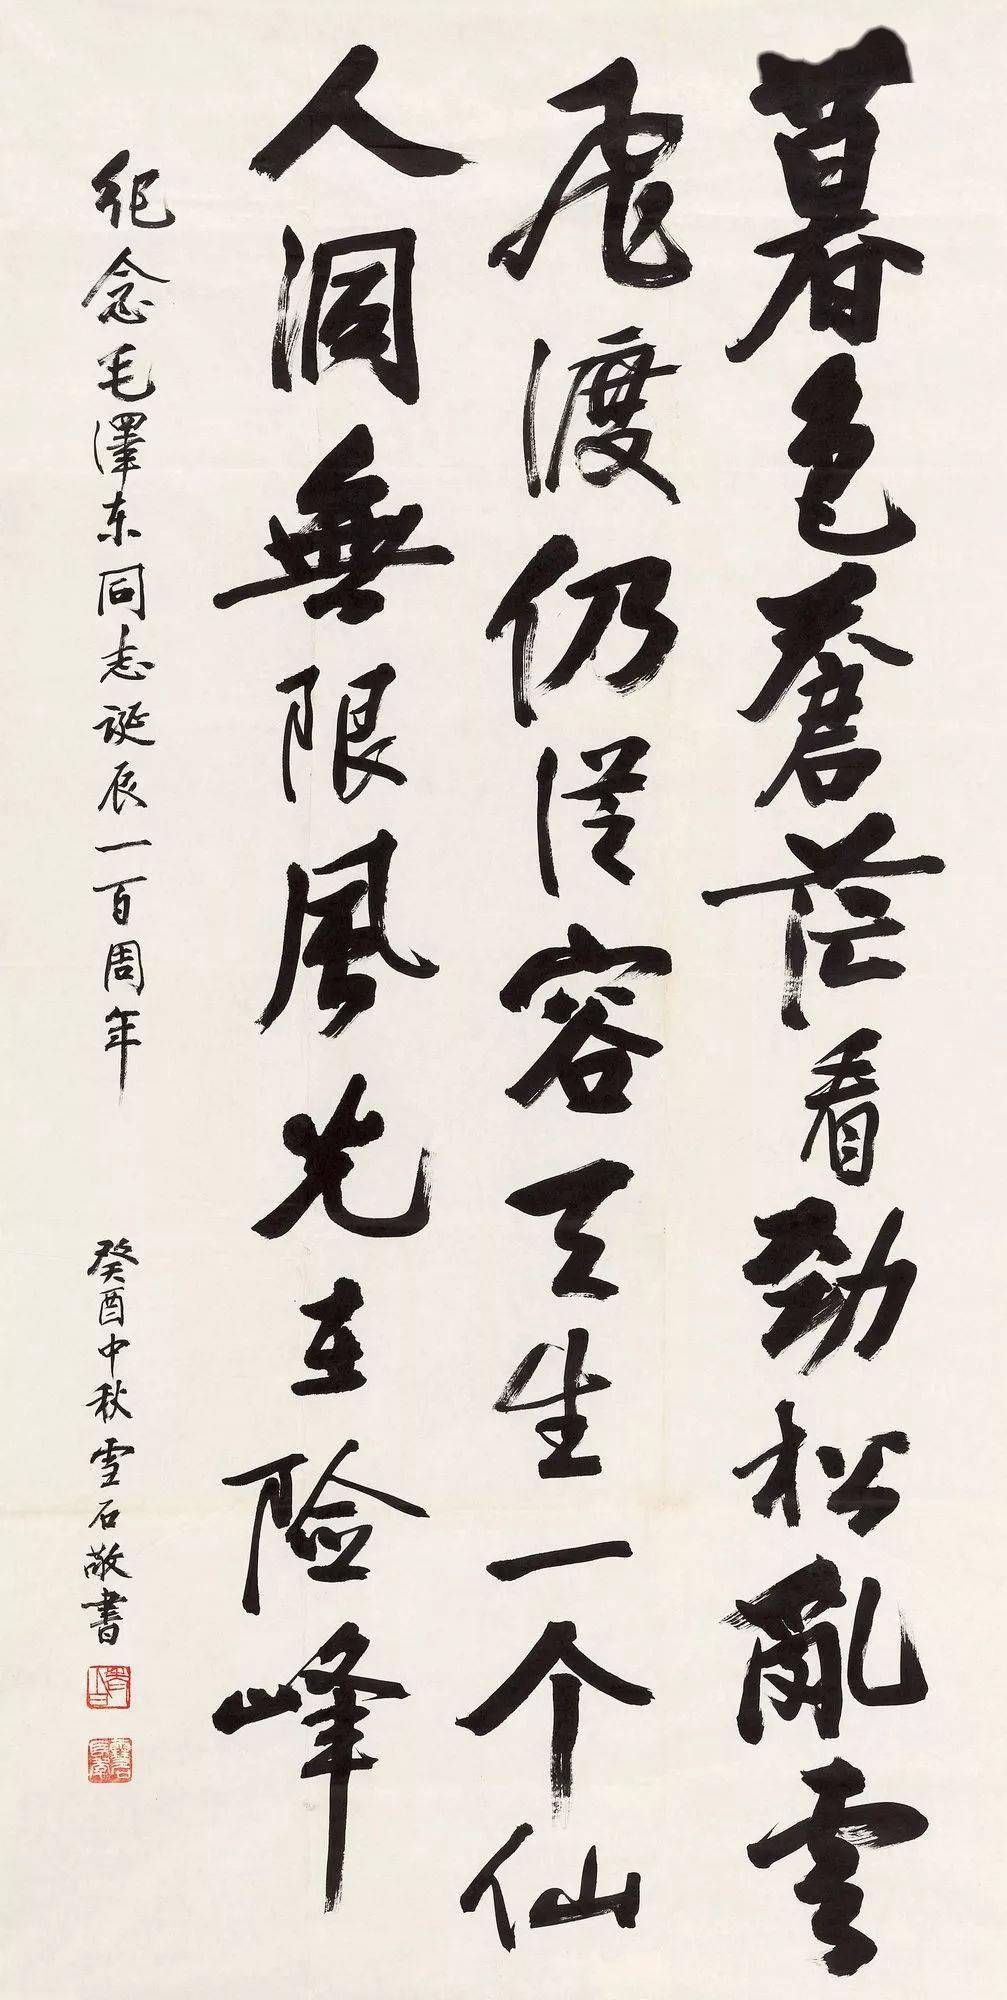 暮色蒼茫看劲松亂雲
飛渡仍從容天生一个仙
人洞無限風光在险峰
纪念毛澤东同志诞辰一百周年
癸酉中秋雪石敬書